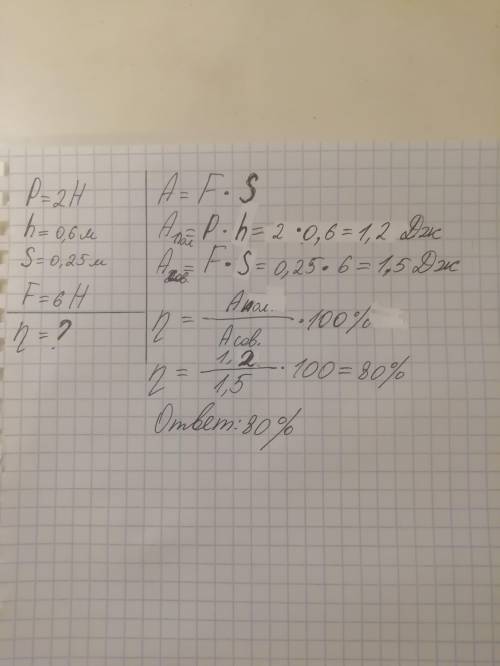 P = 2 Н
h = 0,6 м
S = 0,25 м
F = 6 Н
η = ?
A = F · S
Aпол = P · h = 2 · 0,6 = 1,2 Дж
Aсов. = F · S = 0,25 · 6 = 1,5 Дж
η = Aпол. / Aсов. · 100%
η = 1,2 / 1,5 · 100 = 80%
Ответ: 80%